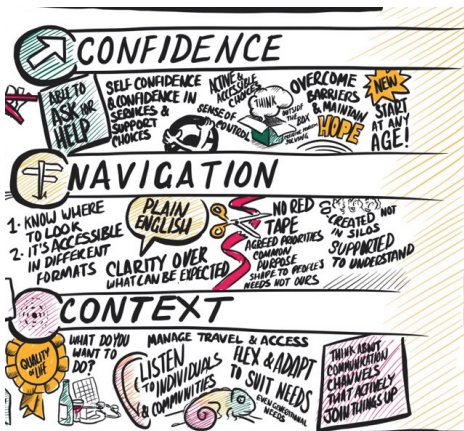 CONFIDENCE
ABLE TO
ASK FOR
HELP
SELF CONFIDENCE
& CONFIDENCE IN
SERVICES &
SUPPORT
CHOICES
ACTIVE &
ACCESSIBLE
CHOICE
SENSE OF
CONTROL
THINK
OUTSIDE
THE
BOX
CREATIVE PROBLEM
SOLVING
OVERCOME
BARRIERS
& MAINTAIN
HOPE
NEW
START
AT ANY
AGE!
NAVIGATION
1. KNOW WHERE
TO LOOK
2. IT'S ACCESSIBLE
IN DIFFERENT
FORMATS
PLAIN
ENGLISH
CLARITY OVER
WHAT CAN BE EXPECTED
NO RED
TAPE
AGREED PRIORITIES
COMMON
PURPOSE
SHAPE TO PEOPLE'S
NEEDS NOT OURS
CREATED NOT
IN SILOS
SUPPORTED
TO UNDERSTAND
CONTEXT
QUALITY
OF LIFE
WHAT DO YOU
WANT TO
DO?
MANAGE TRAVEL & ACCESS
LISTEN
TO INDIVIDUALS
& COMMUNITIES
FLEX & ADAPT
TO SUIT NEEDS
EVEN GENERATIONAL
NEEDS
THINK ABOUT
COMMUNICATION
CHANNELS
THAT ACTIVELY
JOIN THINGS UP